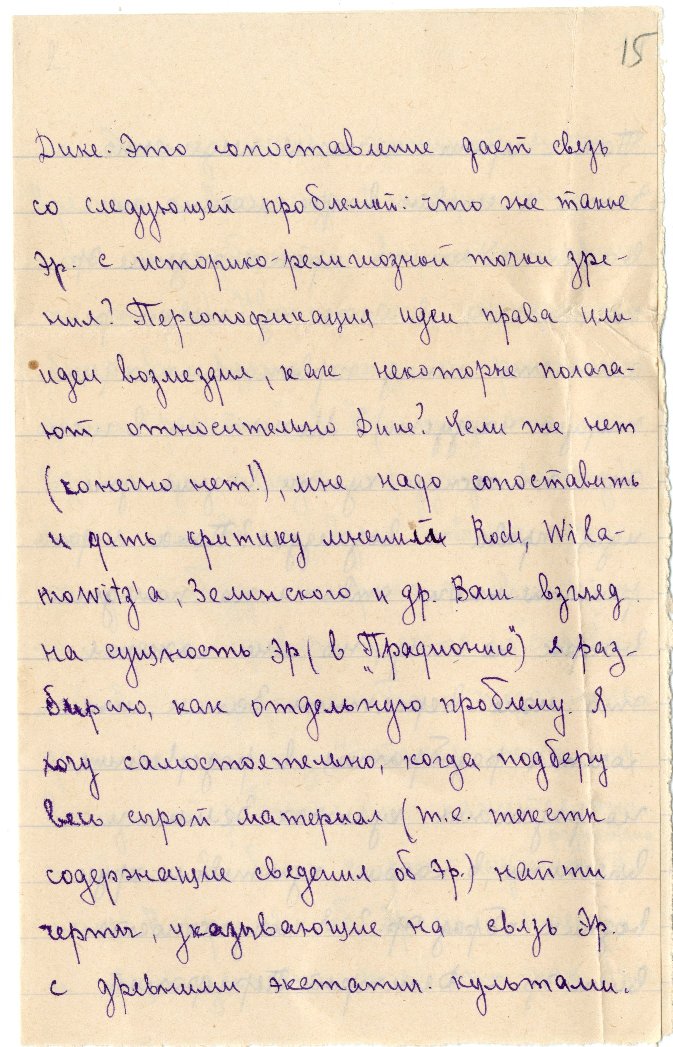 15
Дике. Это сопоставление дает связь
со следующей проблемой: что же такие
Эр. с историко-религиозной точки зре-
ния? Персонофикация идеи права или
идеи возмездия, как некоторые полага-
ют относительно Дике? Если же нет
(конечно нет!), мне надо сопоставить
и дать критику мнений Rode, Wila-
mowitz'a, Зелинского и др. Ваш взгляд
на сущность Эр (в "Прадионисе") я раз-
бираю, как отдельную проблему. Я
хочу самостоятельно, когда подберу
весь сырой материал (т.е. тексты
содержащие сведения об Эр.) найти
черты, указывающие на связь Эр.
с древними экстатич. культами.